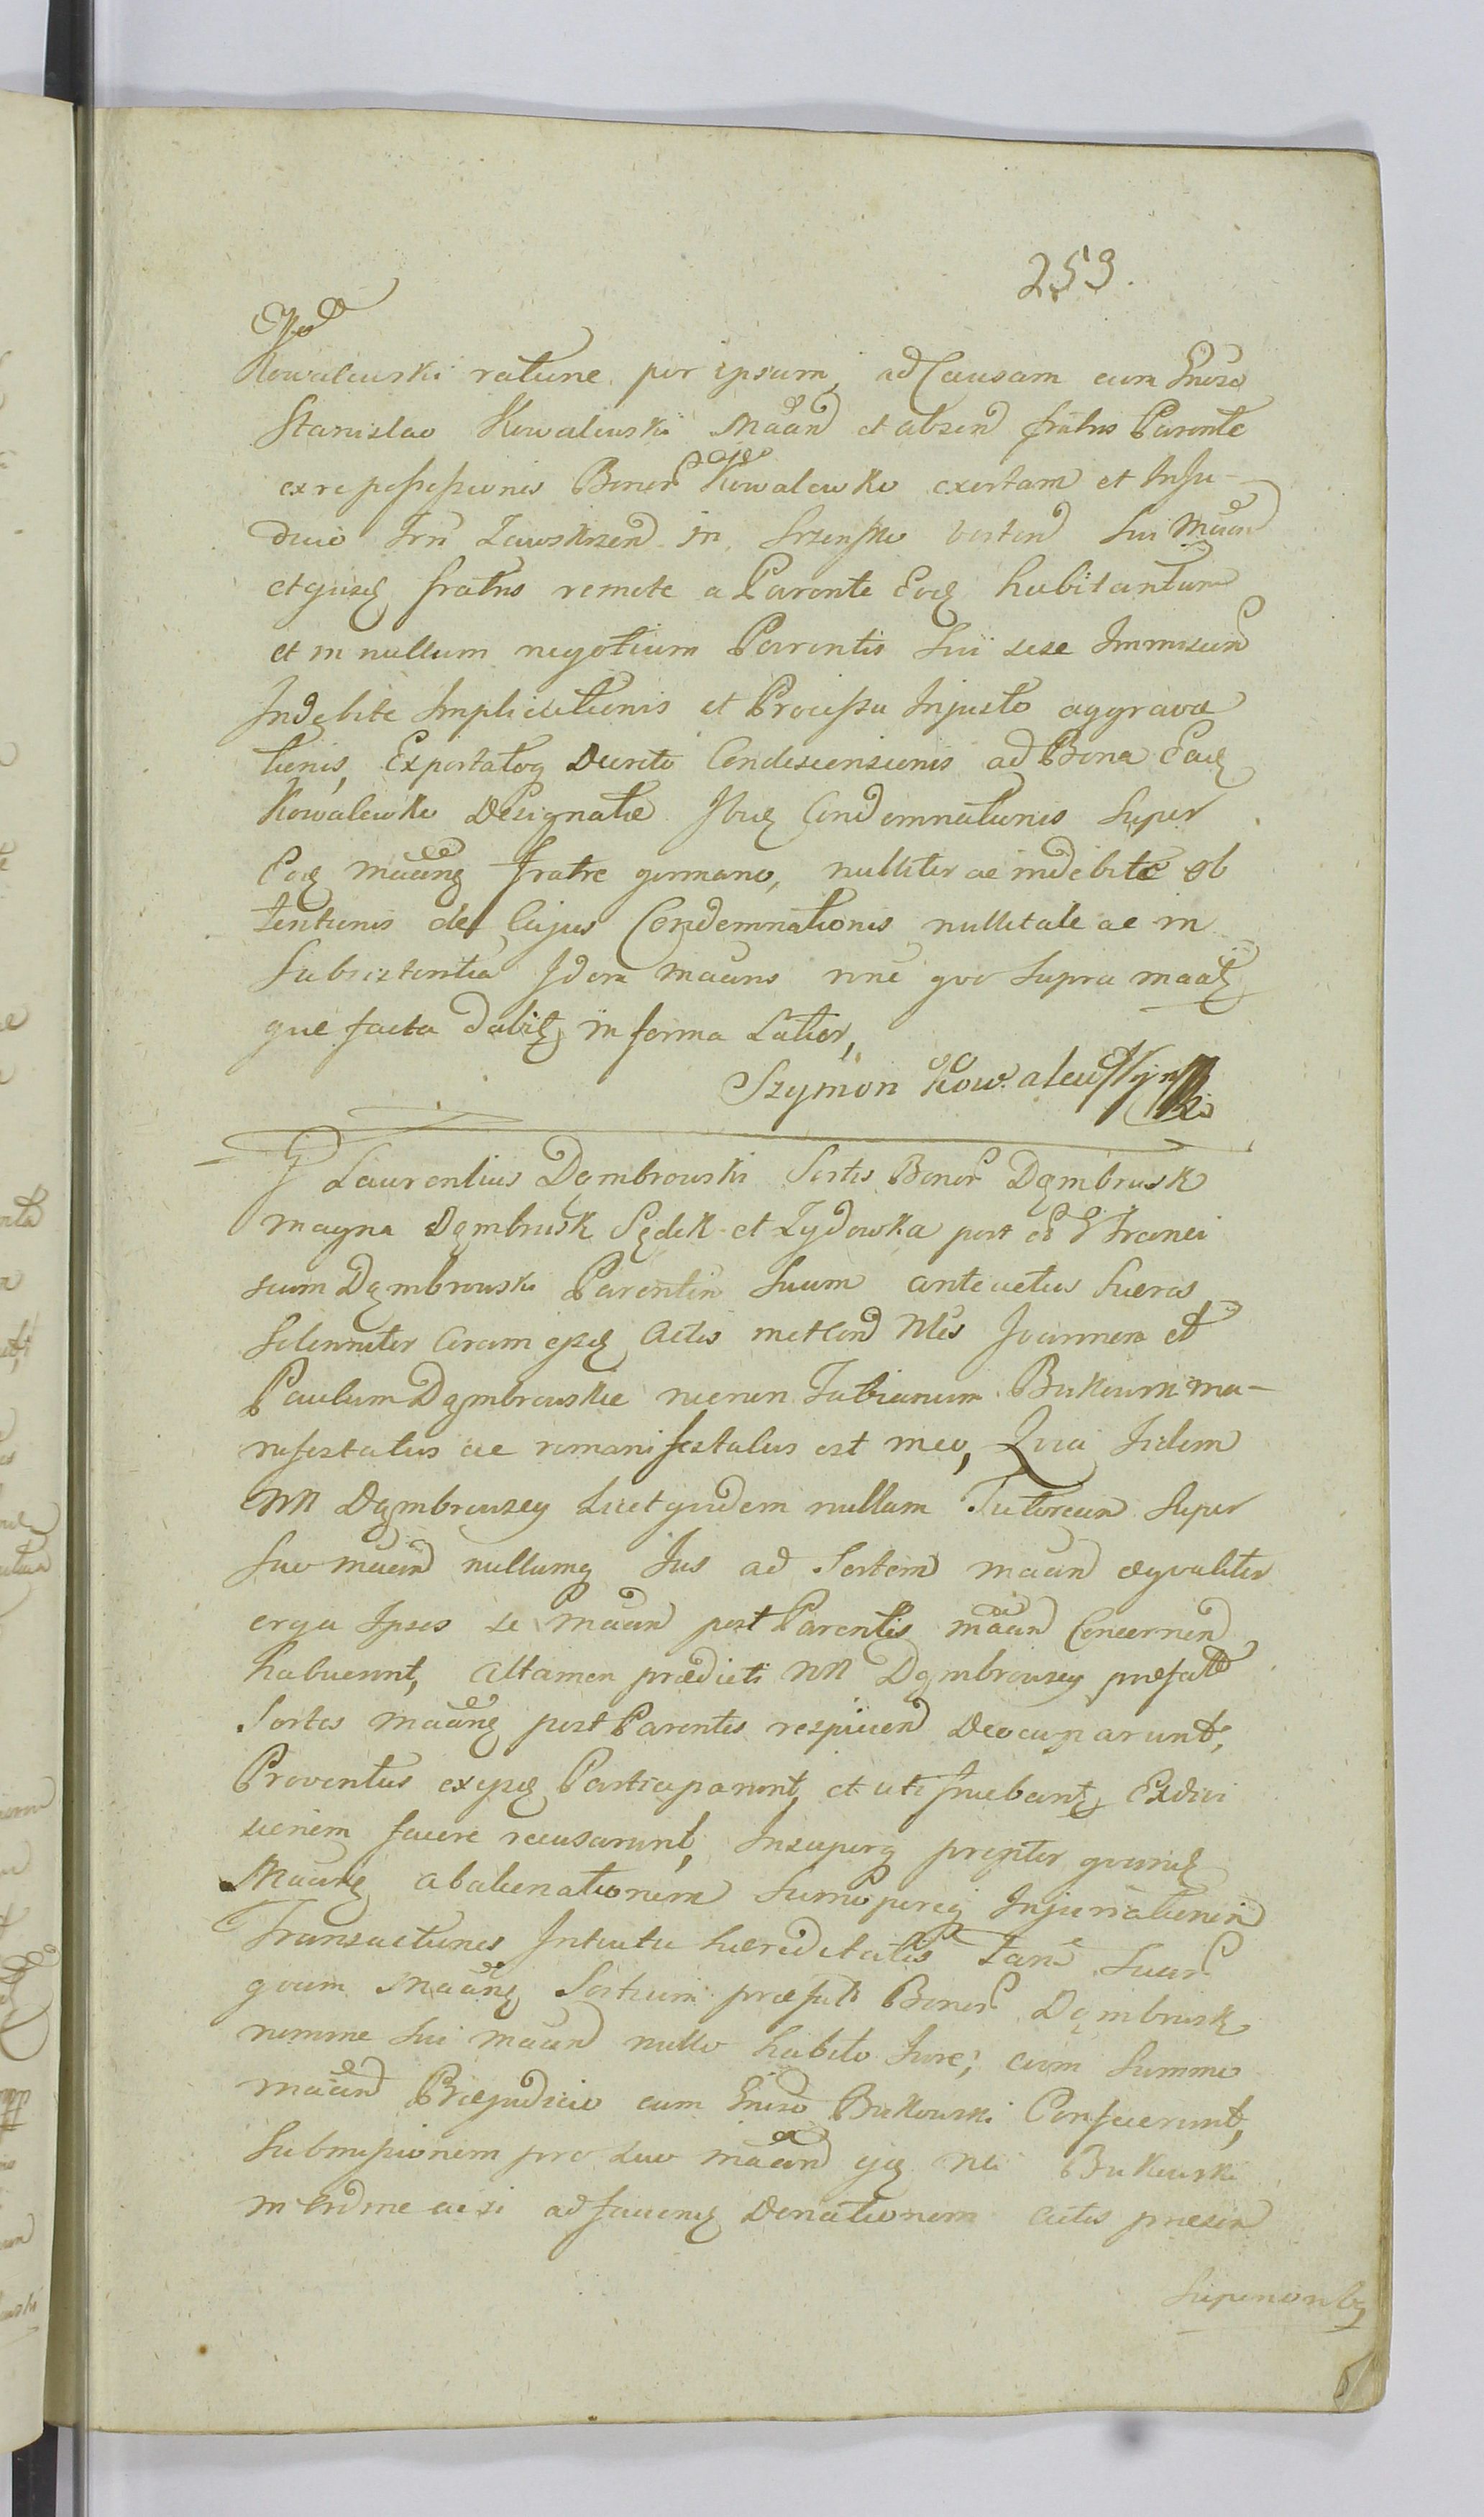 253.
Kowalewski ratione per ipsum, ad Causam cum Gnoso
Stanislao Kowalewski Maãnd et absen fratris Parente
ex repossessionis Bonor Kowalewko exortam et In Ju-
dicio Trri Zawskrzen in Srzensko verten sui Maãn
et gnisq fratris remote a Parente Eoq habitantium
et in nullum negotium Parentis Sui sese Immiscen
Indebite Implicitionis et Processu Injusto aggrava
tionis, Exportatoq Decreto Condescensionis ad Bona Eaq
Kowalewko Designatæ Ibiq Condemnationis Super
Eoq maãnq Fratre germano, nulliter ac indebite ob
tentionis de Cujus Condemnationis nullitate ac in
Subsistentia Idem maãns rõne quo Supra maatq
que facta dabitq in forma Latior,
Szymon Kowalewski
Laurentius Dąmbrowski Sortis Bonor Dąmbrusk
magna Dąmbrusk Sędek et Zydowka post G Franci
scum Dąmbrowski Parentem Suum antevetus hæres
Solenniter Coram ejsq Actis met Con Nles Joannem et
Paulum Dąmbrowskie necnon Fabianum Bukowski ma-
nifestatus ac remanifestatus est meo, Quia Iidem
NN Dąmbrowscy Licet quidem nullam Tutoream Super
Suo maãnd nullumq Jus ad Sortem maãnd æqualiter
erga Ipsos se maãnd post Parentis maãnd Concernen
habuerunt, Attamen prædicti NN Dąmbrowscy præfat
Sortes maãnq post Parentes respicien Deocuparunt,
Proventus ex ipsq Participarunt, et uti fruebantq Exdivi
sionem facere recusarunt, Insuperq propter
Maãnq abalienationem Summopereq Injuriationem
Transactiones Intuitu hæreditatis Tam Suar
quam Maãnq Sortium præfat Bonor Dąmbrusk
nomine Sui maãnd nullo habito Jure, cum Summo
maãnd Præjudicio cum Gnoso Bukowski Confecerunt,
Submissionem pro Suo maãnd ejq Nli Bukowski
ad facienq Donationem Actis præsen